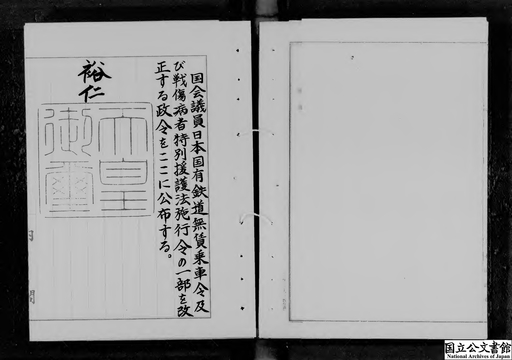 国会議員日本国有鉄道無賃乗車令及
び戦傷病者特別援護法施行令の一部を改
正する政令をここに公布する。
裕仁
天皇
御璽
国立公文書館
National Archives of Japan